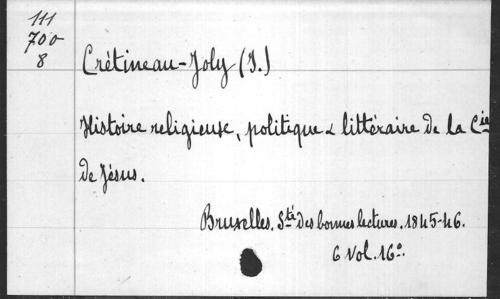 111
700
8
Crétineau-Joly (J.)
Histoire religieuse, politique & littéraire de la Cie
de Jésus.
Bruxelles. Sté des bonnes lectures. 1845-46.
6 Vol. 16º.